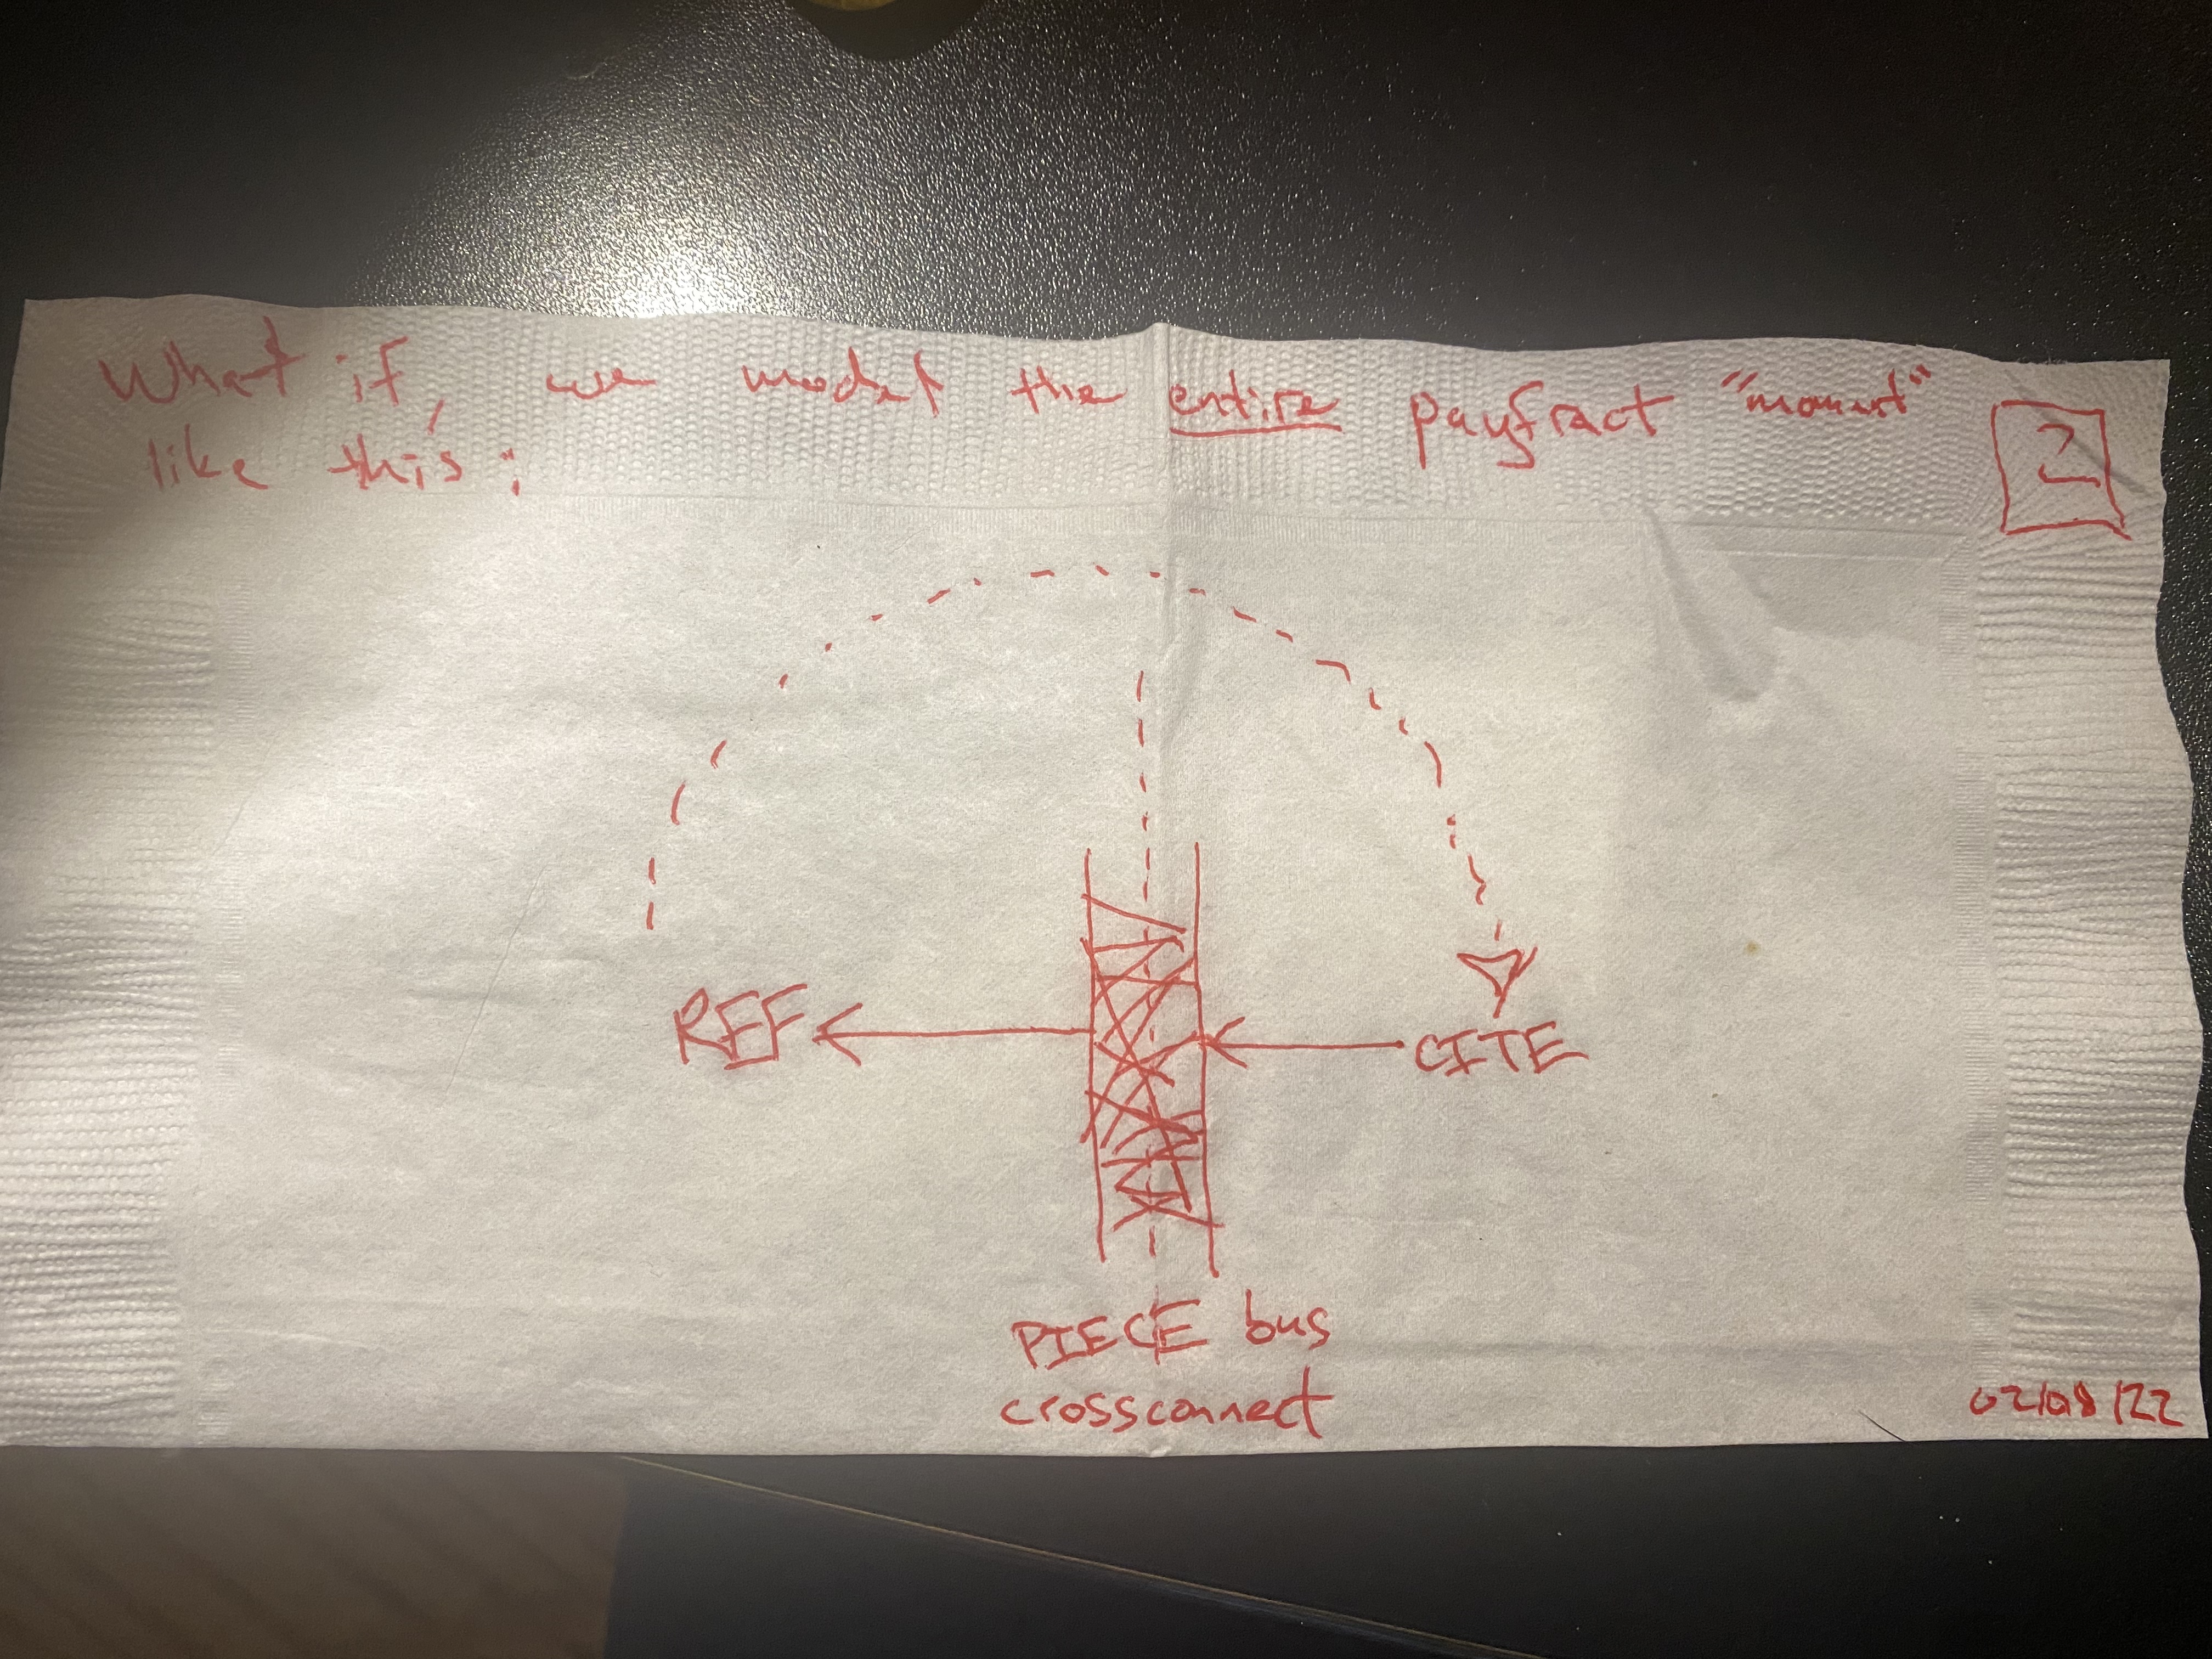 What if, we model the entire payfract "moment"
like this:
2
REF
CITE
PIECE bus
crossconnect
02/08/22